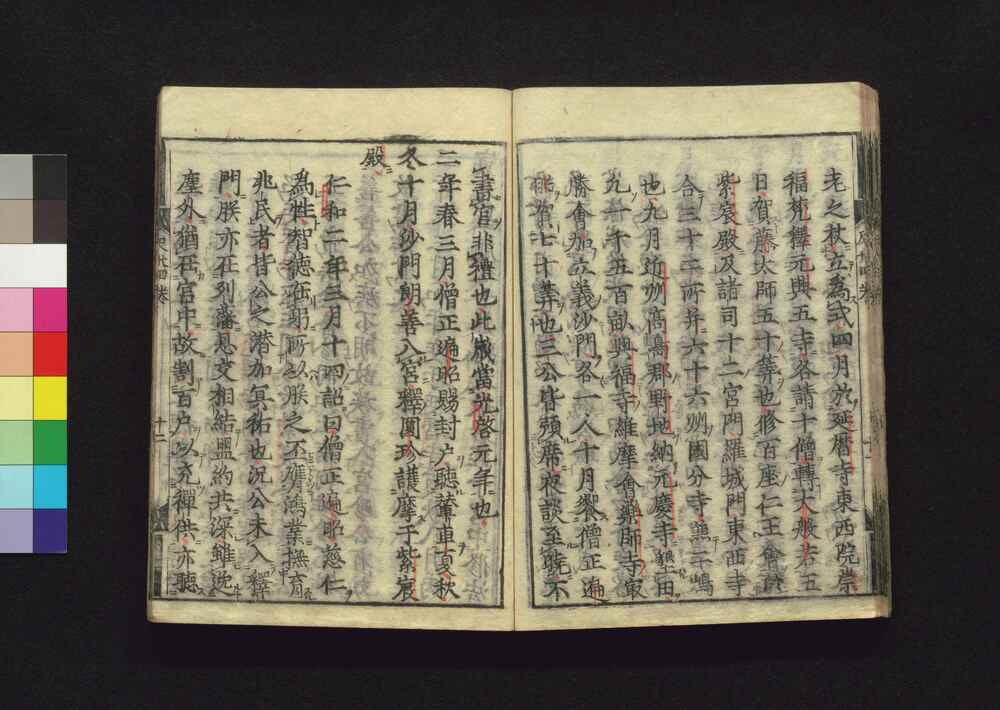 老之杖立為式四月於延暦寺東西院崇
福梵釋元興五寺各請十僧轉大般若五
日賀藤太師五十算也修百座仁王會於
紫宸殿及諸司十二宮門羅城門東西寺
合三十二所并六十六州國分寺無二嶋
也九月近州高嶋郡野地納元慶寺墾田
九一千五百畝興福寺維摩會藥師寺㝡
勝會加立義沙門各一人十月爵僧正遍
昭賀七十算也三公皆預席夜談至曉不
書官非禮也此歳當光啓元年也
二年春三月僧正遍昭賜封户聽輦車夏秋
冬十月沙門朗善入宮釋圓珍護摩于紫宸
殿
仁和二年三月十四詔曰僧正遍昭慈仁
為性智德在躬所以朕之丕膺鴻業撫育
兆民者皆公之潜加冥祐也況公未入釋
門朕亦在列藩恳交相結盟約共深雖迯
塵外猶在宮中故割百户以充禪供亦聽
十二